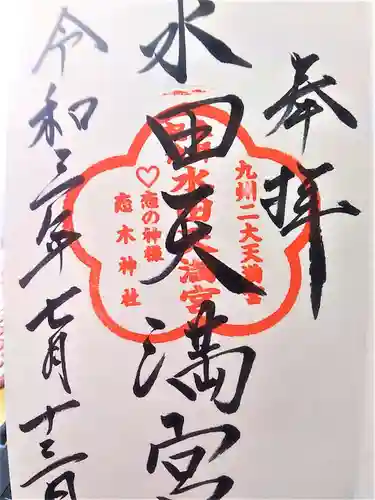 奉拝
水田天満宮
九州二大天満宮
水田天満宮
♡恋の神様
恋木神社
令和三年七月十三日